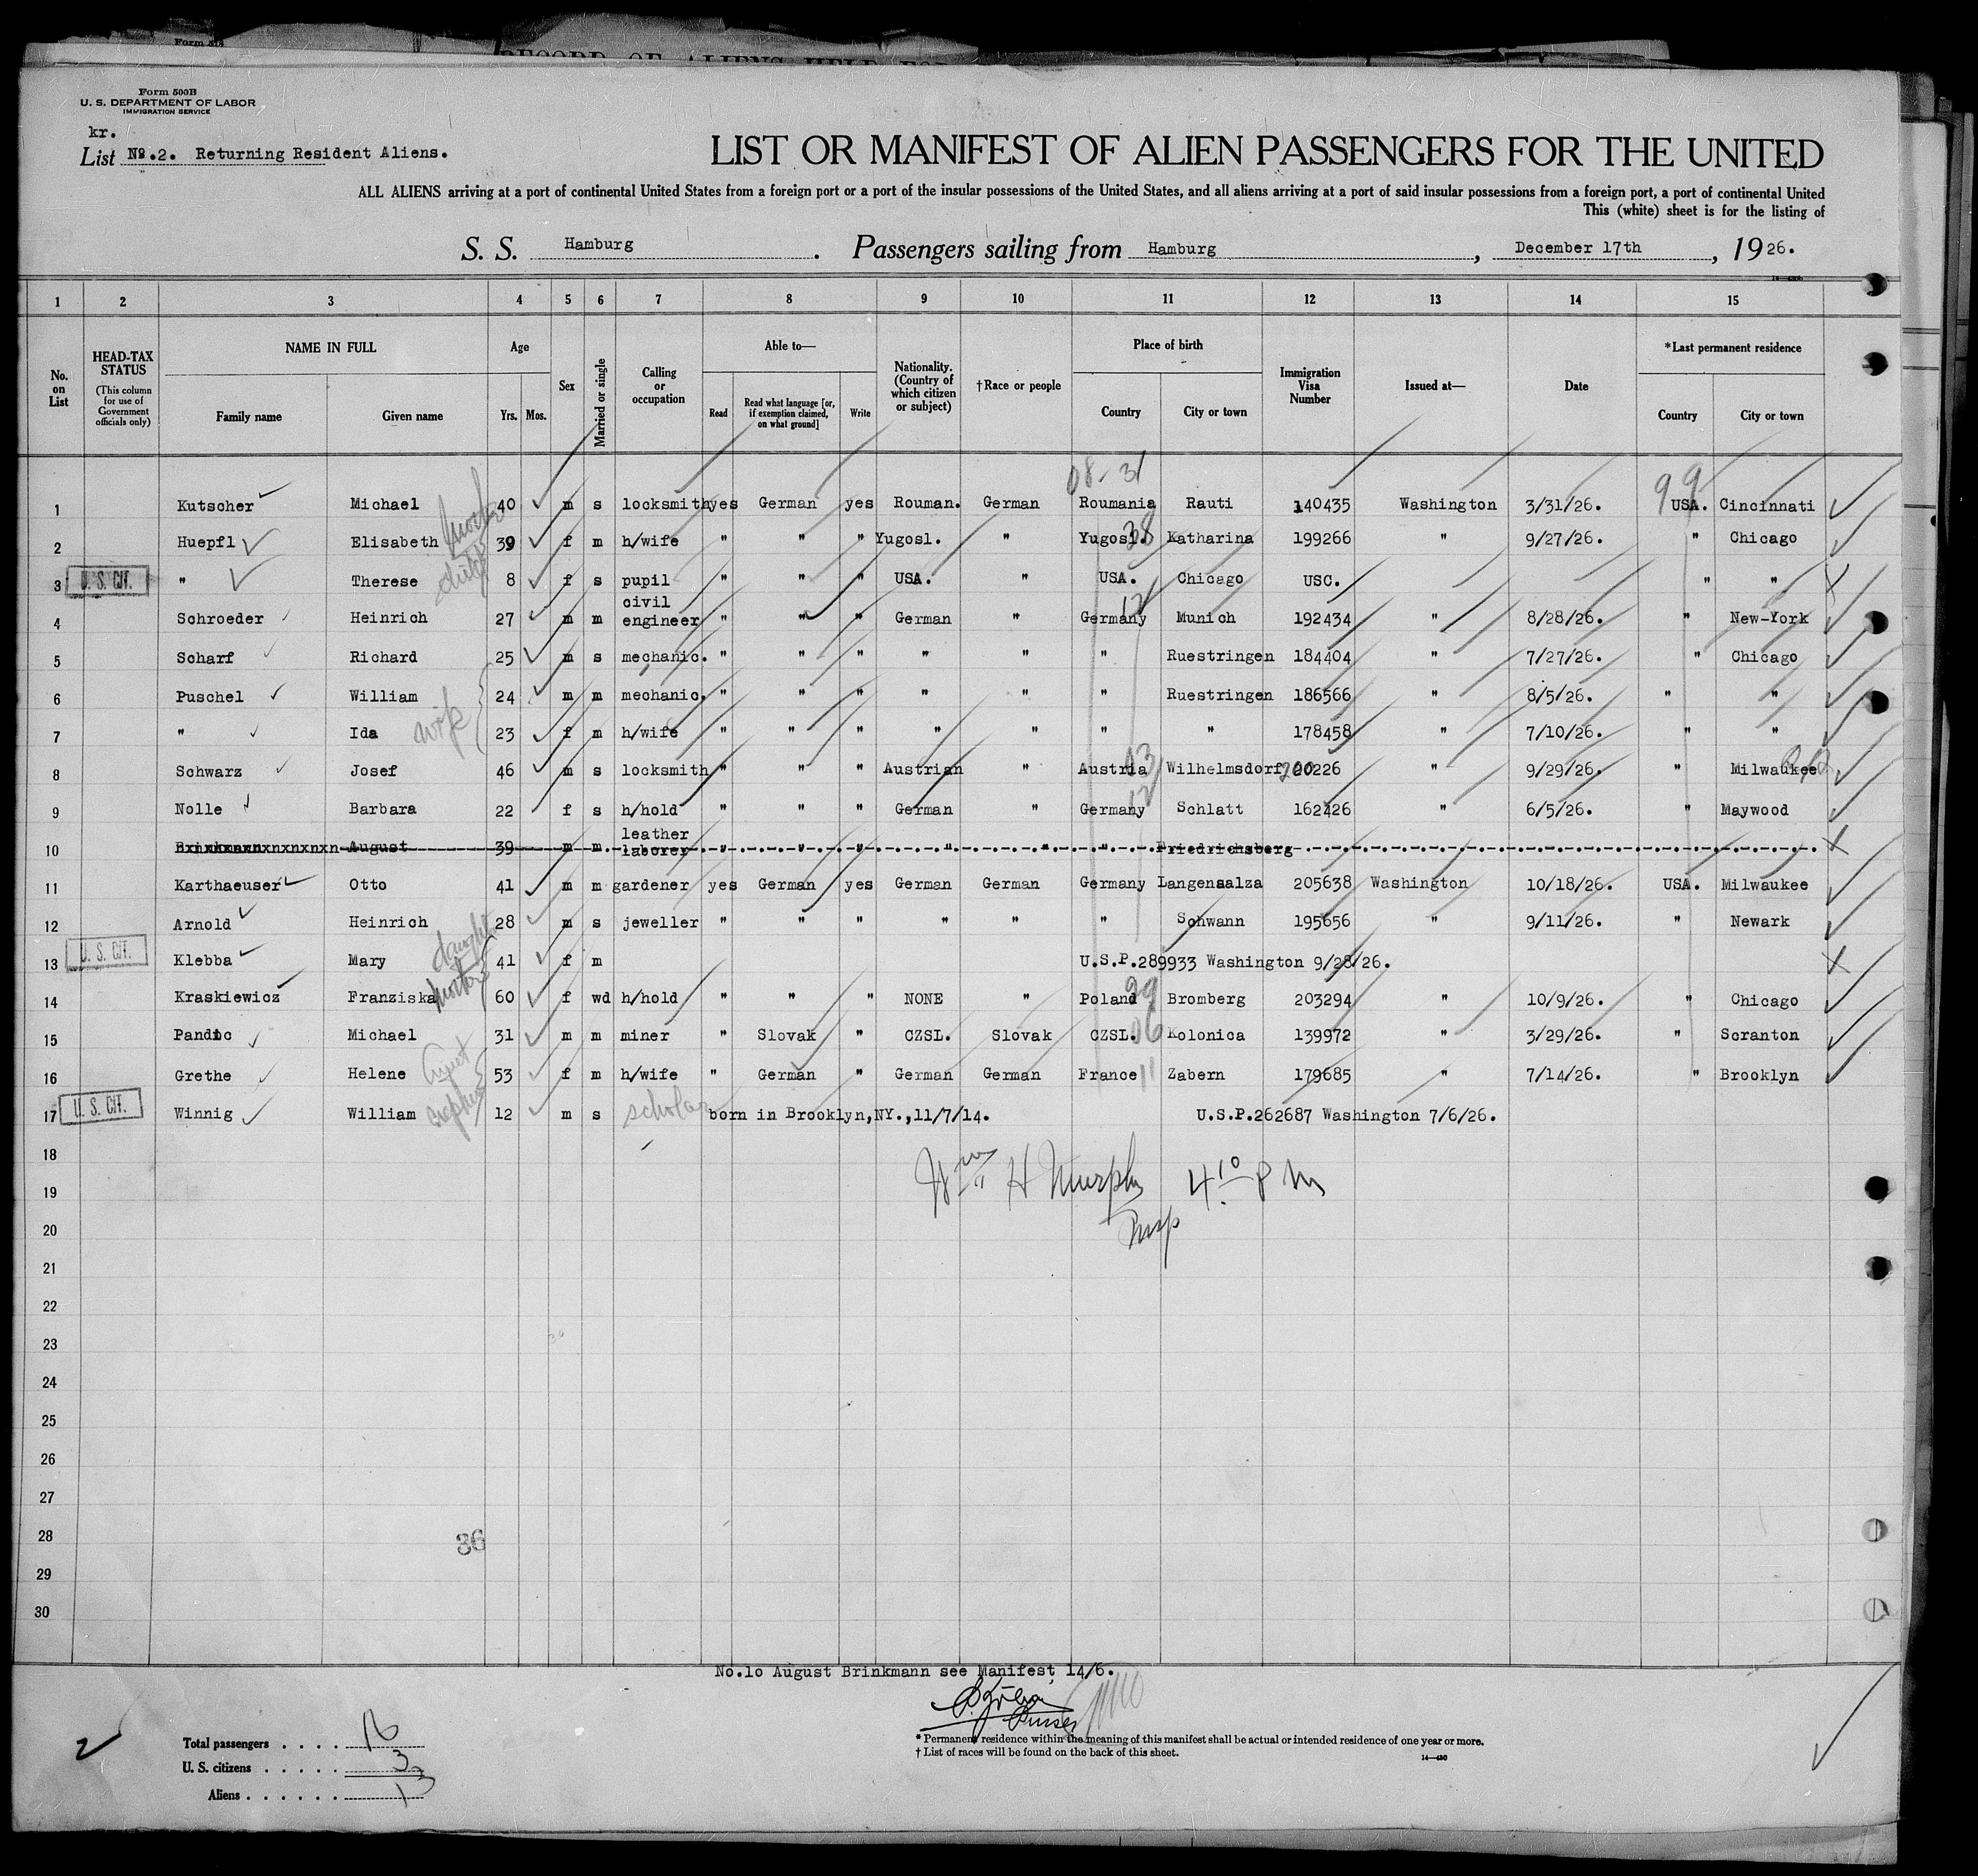 Form 500B
U. S. DEPARTMENT OF LABOR
IMMIGRATION SERVICE
kr.
List No.2. Returning Resident Aliens.
LIST OR MANIFEST OF ALIEN PASSENGERS FOR THE UNITED
ALL ALIENS arriving at a port of continental United States from a foreign port or a port of the insular possessions of the United States, and all aliens arriving at a port of said insular possessions from a foreign port, a port of continental United
This (white) sheet is for the listing of
S. S. Hamburg . Passengers sailing from Hamburg , December 17th , 1926.
1 2 3 4 5 6 7 8 9 10 11 12 13 14 15
No. on List
HEAD-TAX STATUS (This column for use of Government officials only)
NAME IN FULL Family name Given name
Age Yrs. Mos.
Sex
Married or single
Calling or occupation
Able to— Read Read what language [or, if exemption claimed, on what ground] Write
Nationality. (Country of which citizen or subject)
†Race or people
Place of birth Country City or town
Immigration Visa Number
Issued at—
Date
*Last permanent residence Country City or town
08-31 99
1 Kutscher Michael 40 m s locksmith yes German yes Rouman. German Roumania Rauti 140435 Washington 3/31/26. USA. Cincinnati
2 Huepfl Elisabeth mother 39 f m h/wife " " " Yugosl. " Yugosl. 38 Katharina 199266 " 9/27/26. " Chicago
3 U. S. CIT. " Therese 8 f s pupil " " " USA. " USA. Chicago USC. " "
4 Schroeder Heinrich 27 m m civil engineer " " " German " Germany 12 Munich 192434 " 8/28/26. " New-York
5 Scharf Richard 25 m s mechanic. " " " " " " Ruestringen 184404 " 7/27/26. " Chicago
6 Puschel William 24 m m mechanic. " " " " " " Ruestringen 186566 " 8/5/26. " "
7 " Ida wife 23 f m h/wife " " " " " " " 178458 " 7/10/26. " "
8 Schwarz Josef 46 m s locksmith " " " Austrian " Austria 03 Wilhelmsdorf 200226 " 9/29/26. " Milwaukee
9 Nolle Barbara 22 f s h/hold " " " German " Germany 12 Schlatt 162426 " 6/5/26. " Maywood
10 Brinkmann August 39 m m leather laborer " " " " " " Friedrichsberg
11 Karthaeuser Otto 41 m m gardener yes German yes German German Germany Langensalza 205638 Washington 10/18/26. USA. Milwaukee
12 Arnold Heinrich 28 m s jeweller " " " " " " Schwann 195656 " 9/11/26. " Newark
13 U. S. CIT. Klebba Mary daughter 41 f m U.S.P.289933 Washington 9/28/26.
14 Kraskiewicz Franziska mother 60 f wd h/hold " " " NONE " Poland 29 Bromberg 203294 " 10/9/26. " Chicago
15 Pandic Michael 31 m m miner " Slovak " CZSL. Slovak CZSL. 06 Kolonica 139972 " 3/29/26. " Scranton
16 Grethe Helene aunt 53 f m h/wife " German " German German France 11 Zabern 179685 " 7/14/26. " Brooklyn
17 U. S. CIT. Winnig William nephew 12 m s scholar born in Brooklyn,NY.,11/7/14. U.S.P.262687 Washington 7/6/26.
18
Wm H Murphy 4 10 P M
19
20
Insp
21
22
23
24
25
26
27
28
36
29
30
No.10 August Brinkmann see Manifest 14/6.
Purser
2
Total passengers . . . . 16
U. S. citizens . . . . . 3
Aliens . . . . . . 13
* Permanent residence within the meaning of this manifest shall be actual or intended residence of one year or more.
† List of races will be found on the back of this sheet.
14—430